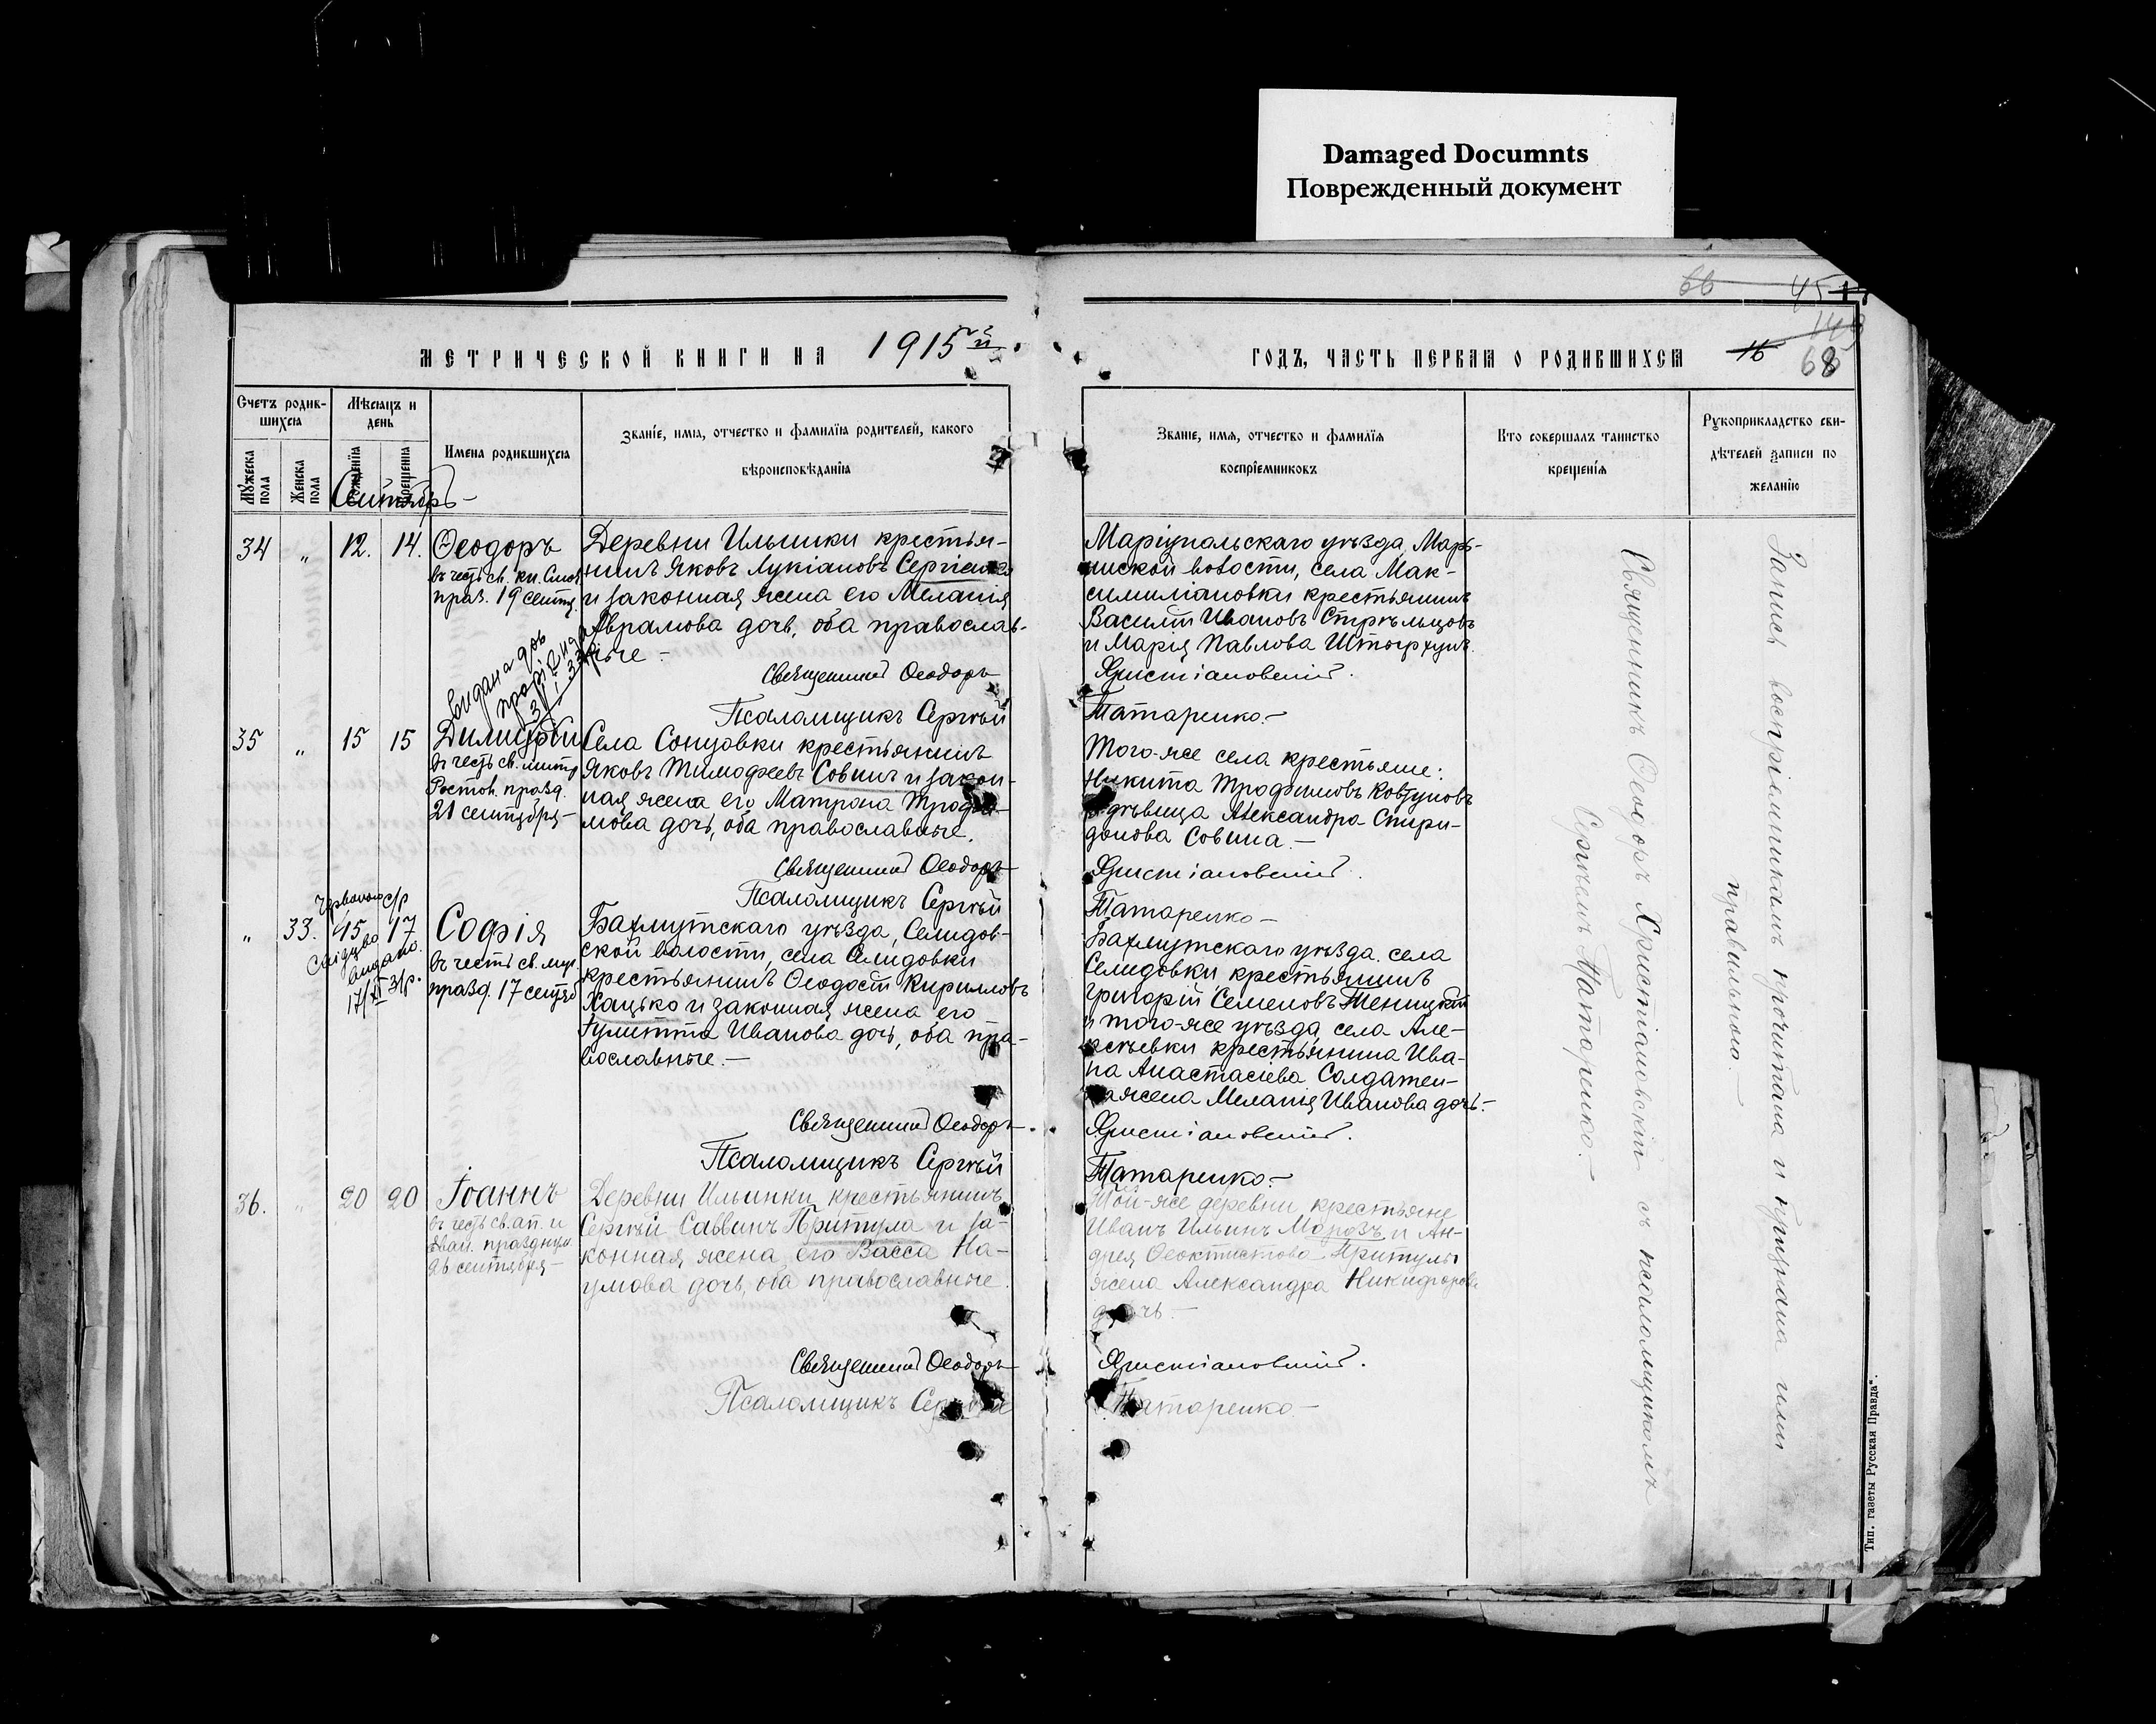 Damaged Documnts
Поврежденный документ
66 45
149
МЕТРИЧЕСКОЙ КНИГИ НА 1915 й
ГОДЪ, ЧАСТЬ ПЕРВАЯ О РОДИВШИХСЯ 16 68
Счетъ родив-
шихся
Мужеска пола
Женска пола
Мѣсяцъ и
день
Рожденїя
Крещенїя
Имена родившихся
Званїе, имя, отчество и фамилїя родителей, какого
вѣроисповѣданїя
Званїе, имя, отчество и фамилїя
воспрїемниковъ
Кто совершалъ таинство
крещенїя
Рукоприкладство сви-
дѣтелей записи по
желанїю
Сентябрь
34 „ 12. 14. Ѳеодоръ
въ честь св. кн. Смол.
праз. 19 сентяб.
Деревни Ильинки крестья-
нинъ Яковъ Лукіановъ Сергіенко
и законная жена его Меланія
Аврамова дочь, оба православ-
ные –
Священникъ Ѳеодоръ
Псаломщикъ Сергѣй
Маріупольскаго уѣзда, Марь-
инской волости, села Мак-
симиліановки крестьянинъ
Василій Ивановъ Стрѣльцовъ
и Марія Павлова
Христіановскій.
Татаренко.–
35 „ 15 15 Димитрій
въ честь св. митр.
Ростов. празд.
21 сентября–
Села Сонцовки крестьянинъ
Яковъ Тимофеевъ Совинъ и закон-
ная жена его Матрона Трофи-
мова дочь, оба православные.
Священникъ Ѳеодоръ
Псаломщикъ Сергѣй
Того-же села крестьяне:
Никита Трофимовъ Ковтуновъ
и дѣвица Александра Спири-
донова Совина.–
Христіановскій.
Татаренко–
„ 33. 15 17 Софія
въ честь св. муч.
празд. 17 сентяб.
17/XI 31р.
Бахмутскаго уѣзда, Селидов-
ской волости, села Селидовки
крестьянинъ Ѳеодосій Кирилловъ
Хацько и законная жена его
Іулитта Иванова дочь, оба пра-
вославные.–
Священникъ Ѳеодоръ
Псаломщикъ Сергѣй
Бахмутскаго уѣзда села
Селидовки крестьянинъ
Григорій Семеновъ
и того-же уѣзда, села Але-
ксѣевки крестьянина Ива-
на Анастасіева Солдатен-
ка жена Меланія Иванова дочь.–
Христіановскій.
Татаренко.–
36. „ 20 20 Іоаннъ
въ честь св. ап. и
еван. празднум.
26 сентября–
Деревни Ильинки крестьянинъ
Сергѣй Саввинъ Притула и за-
конная жена его Васса На-
умова дочь, оба православные.
Священникъ Ѳеодоръ
Псаломщикъ Сергѣй
Той-же деревни крестьяне
Иванъ Ильинъ Морозъ и Ан-
дрея Ѳеоктистова Притулы
жена Александра Никифорова
дочь.–
Христіановскій.
Татаренко–
Священникъ Ѳеодоръ Христіановскій съ псаломщикомъ
Сергѣемъ Татаренко.–
Запись воспріемникамъ прочитана и признана ими
правильною.–
Тип. газеты Русская Правда".